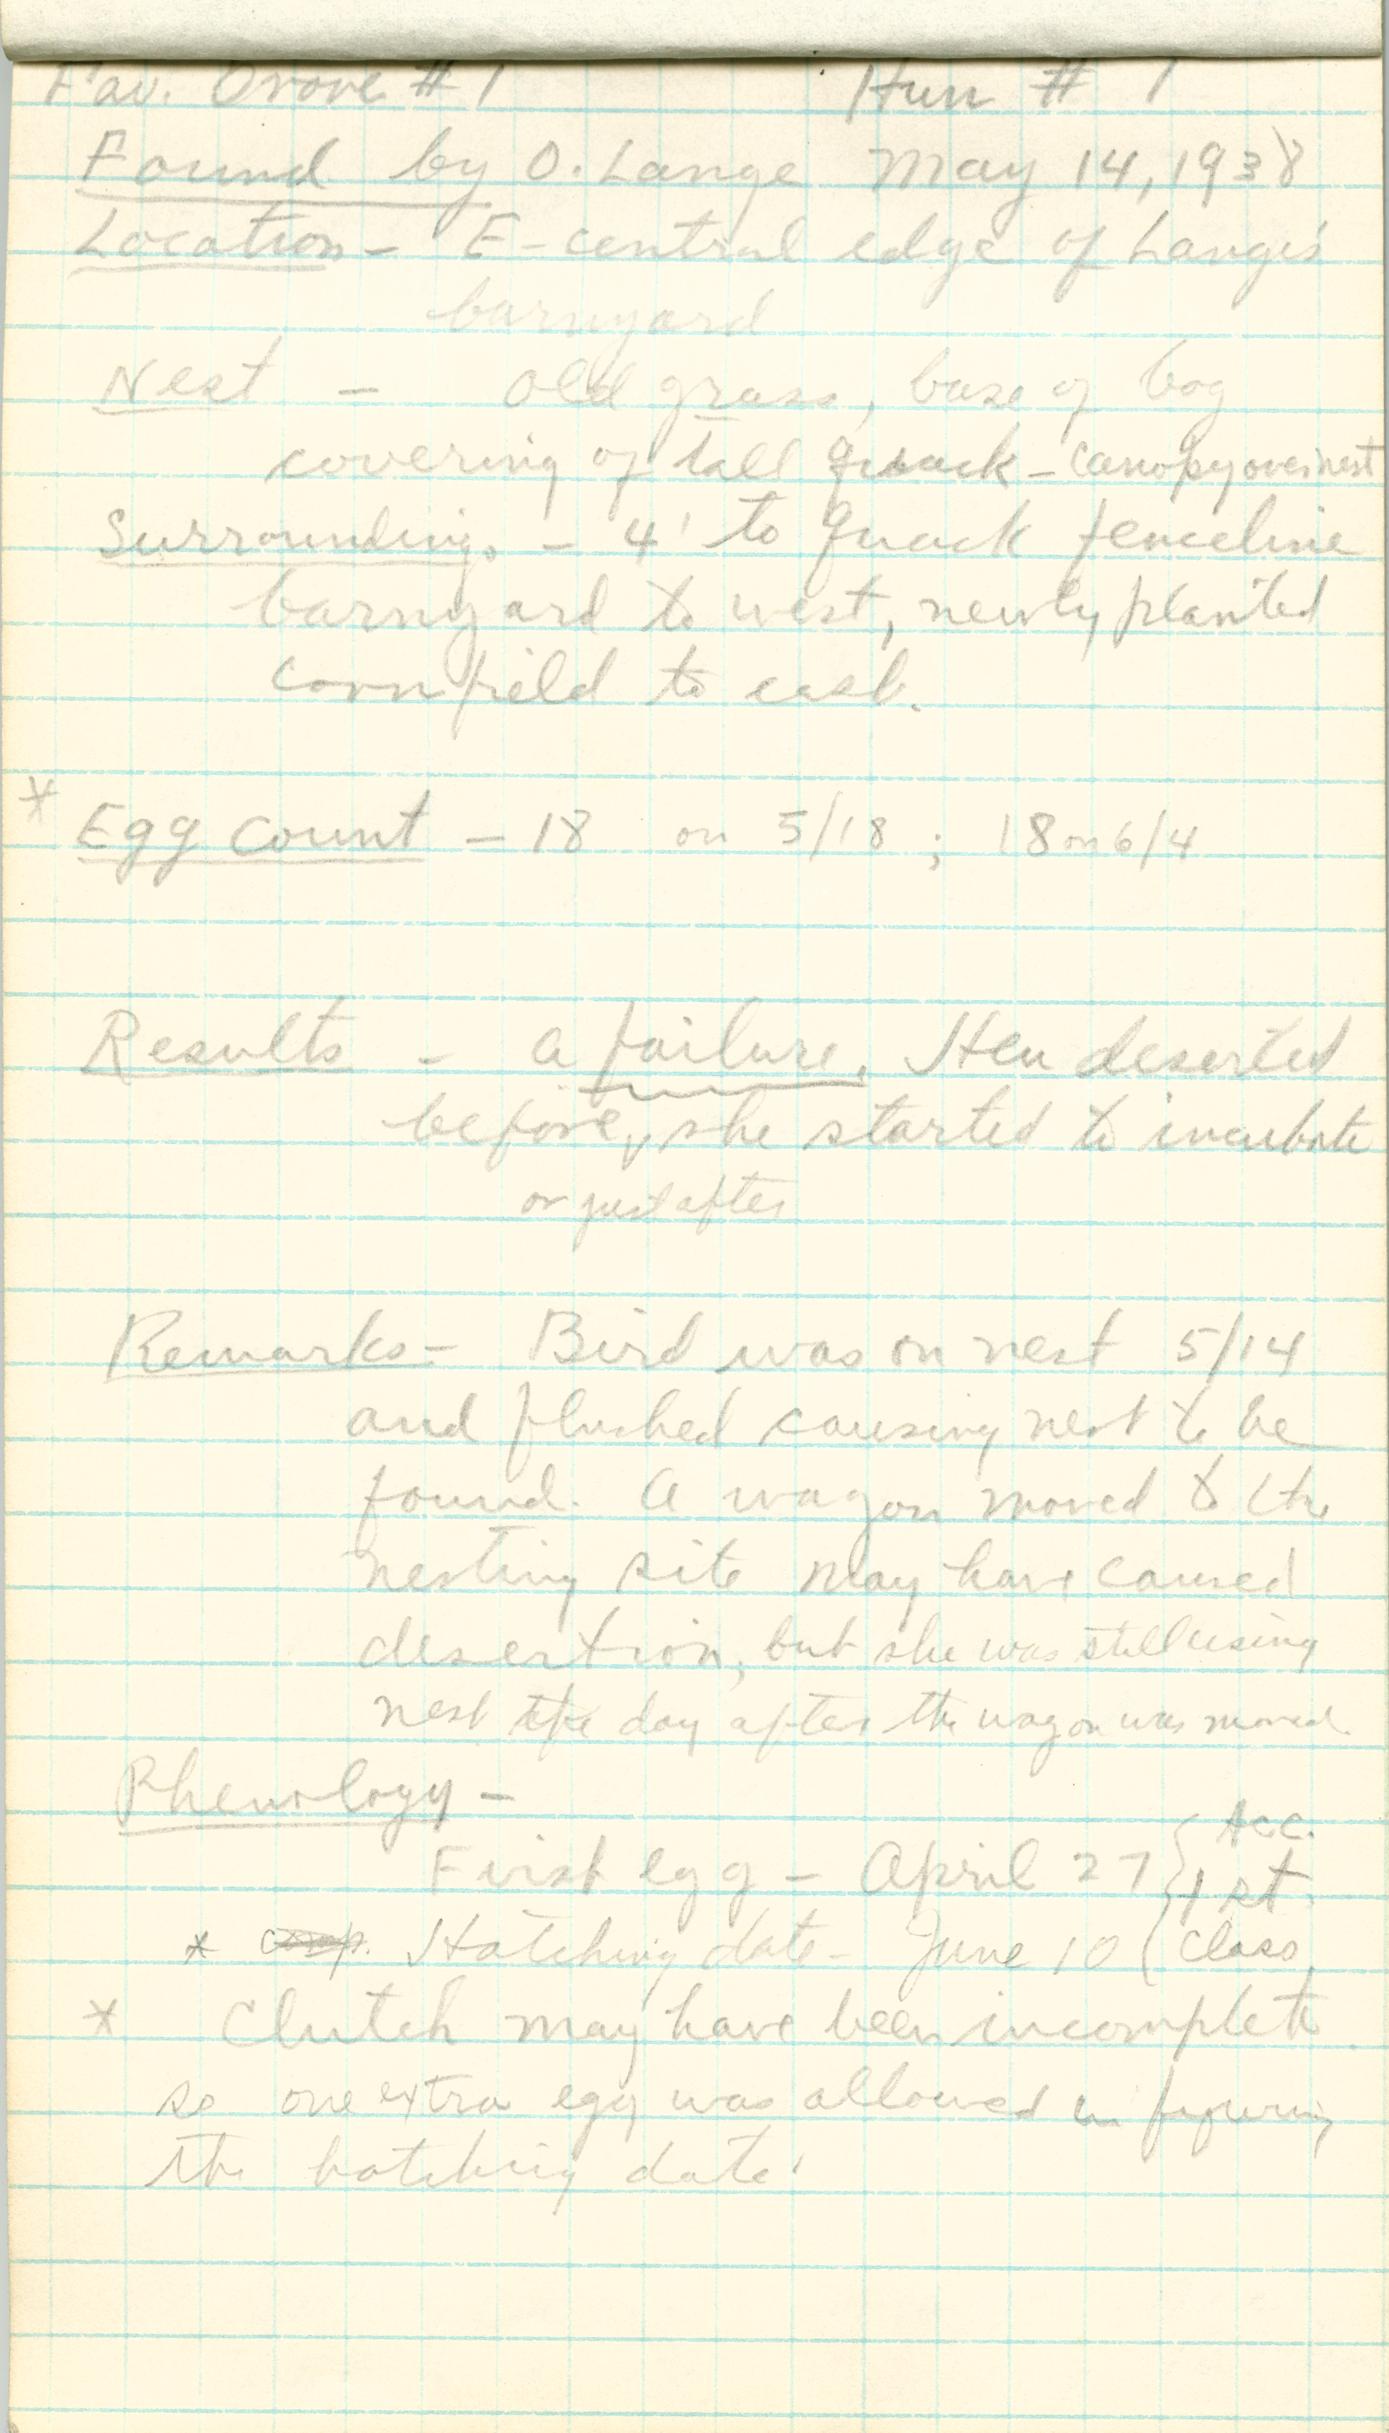 Fav. Grove # 1 Hun # 1
Found by O. Lange May 14, 1938
Location - E-central edge of Lange's
barnyard
Nest - old grass, base of bog
covering of tall quack - canopy over nest
Surroundings - 4' to quack fenceline
barnyard to west, newly planted
cornfield to east.
* Egg Count - 18 on 5/18 ; 18 on 6/4
Results - a failure. Hen deserted
before she started to incubate
or just after
Remarks - Bird was on nest 5/14
and flushed causing nest to be
found. A wagon moved to the
nesting site may have caused
desertion, but she was still using
nest the day after the wagon was moved.
Phenology -
First egg - April 27 { Acc. 1 st.
* comp. Hatching date - June 10 { class
* Clutch may have been incomplete
so one extra egg was allowed in figuring
the hatching date.